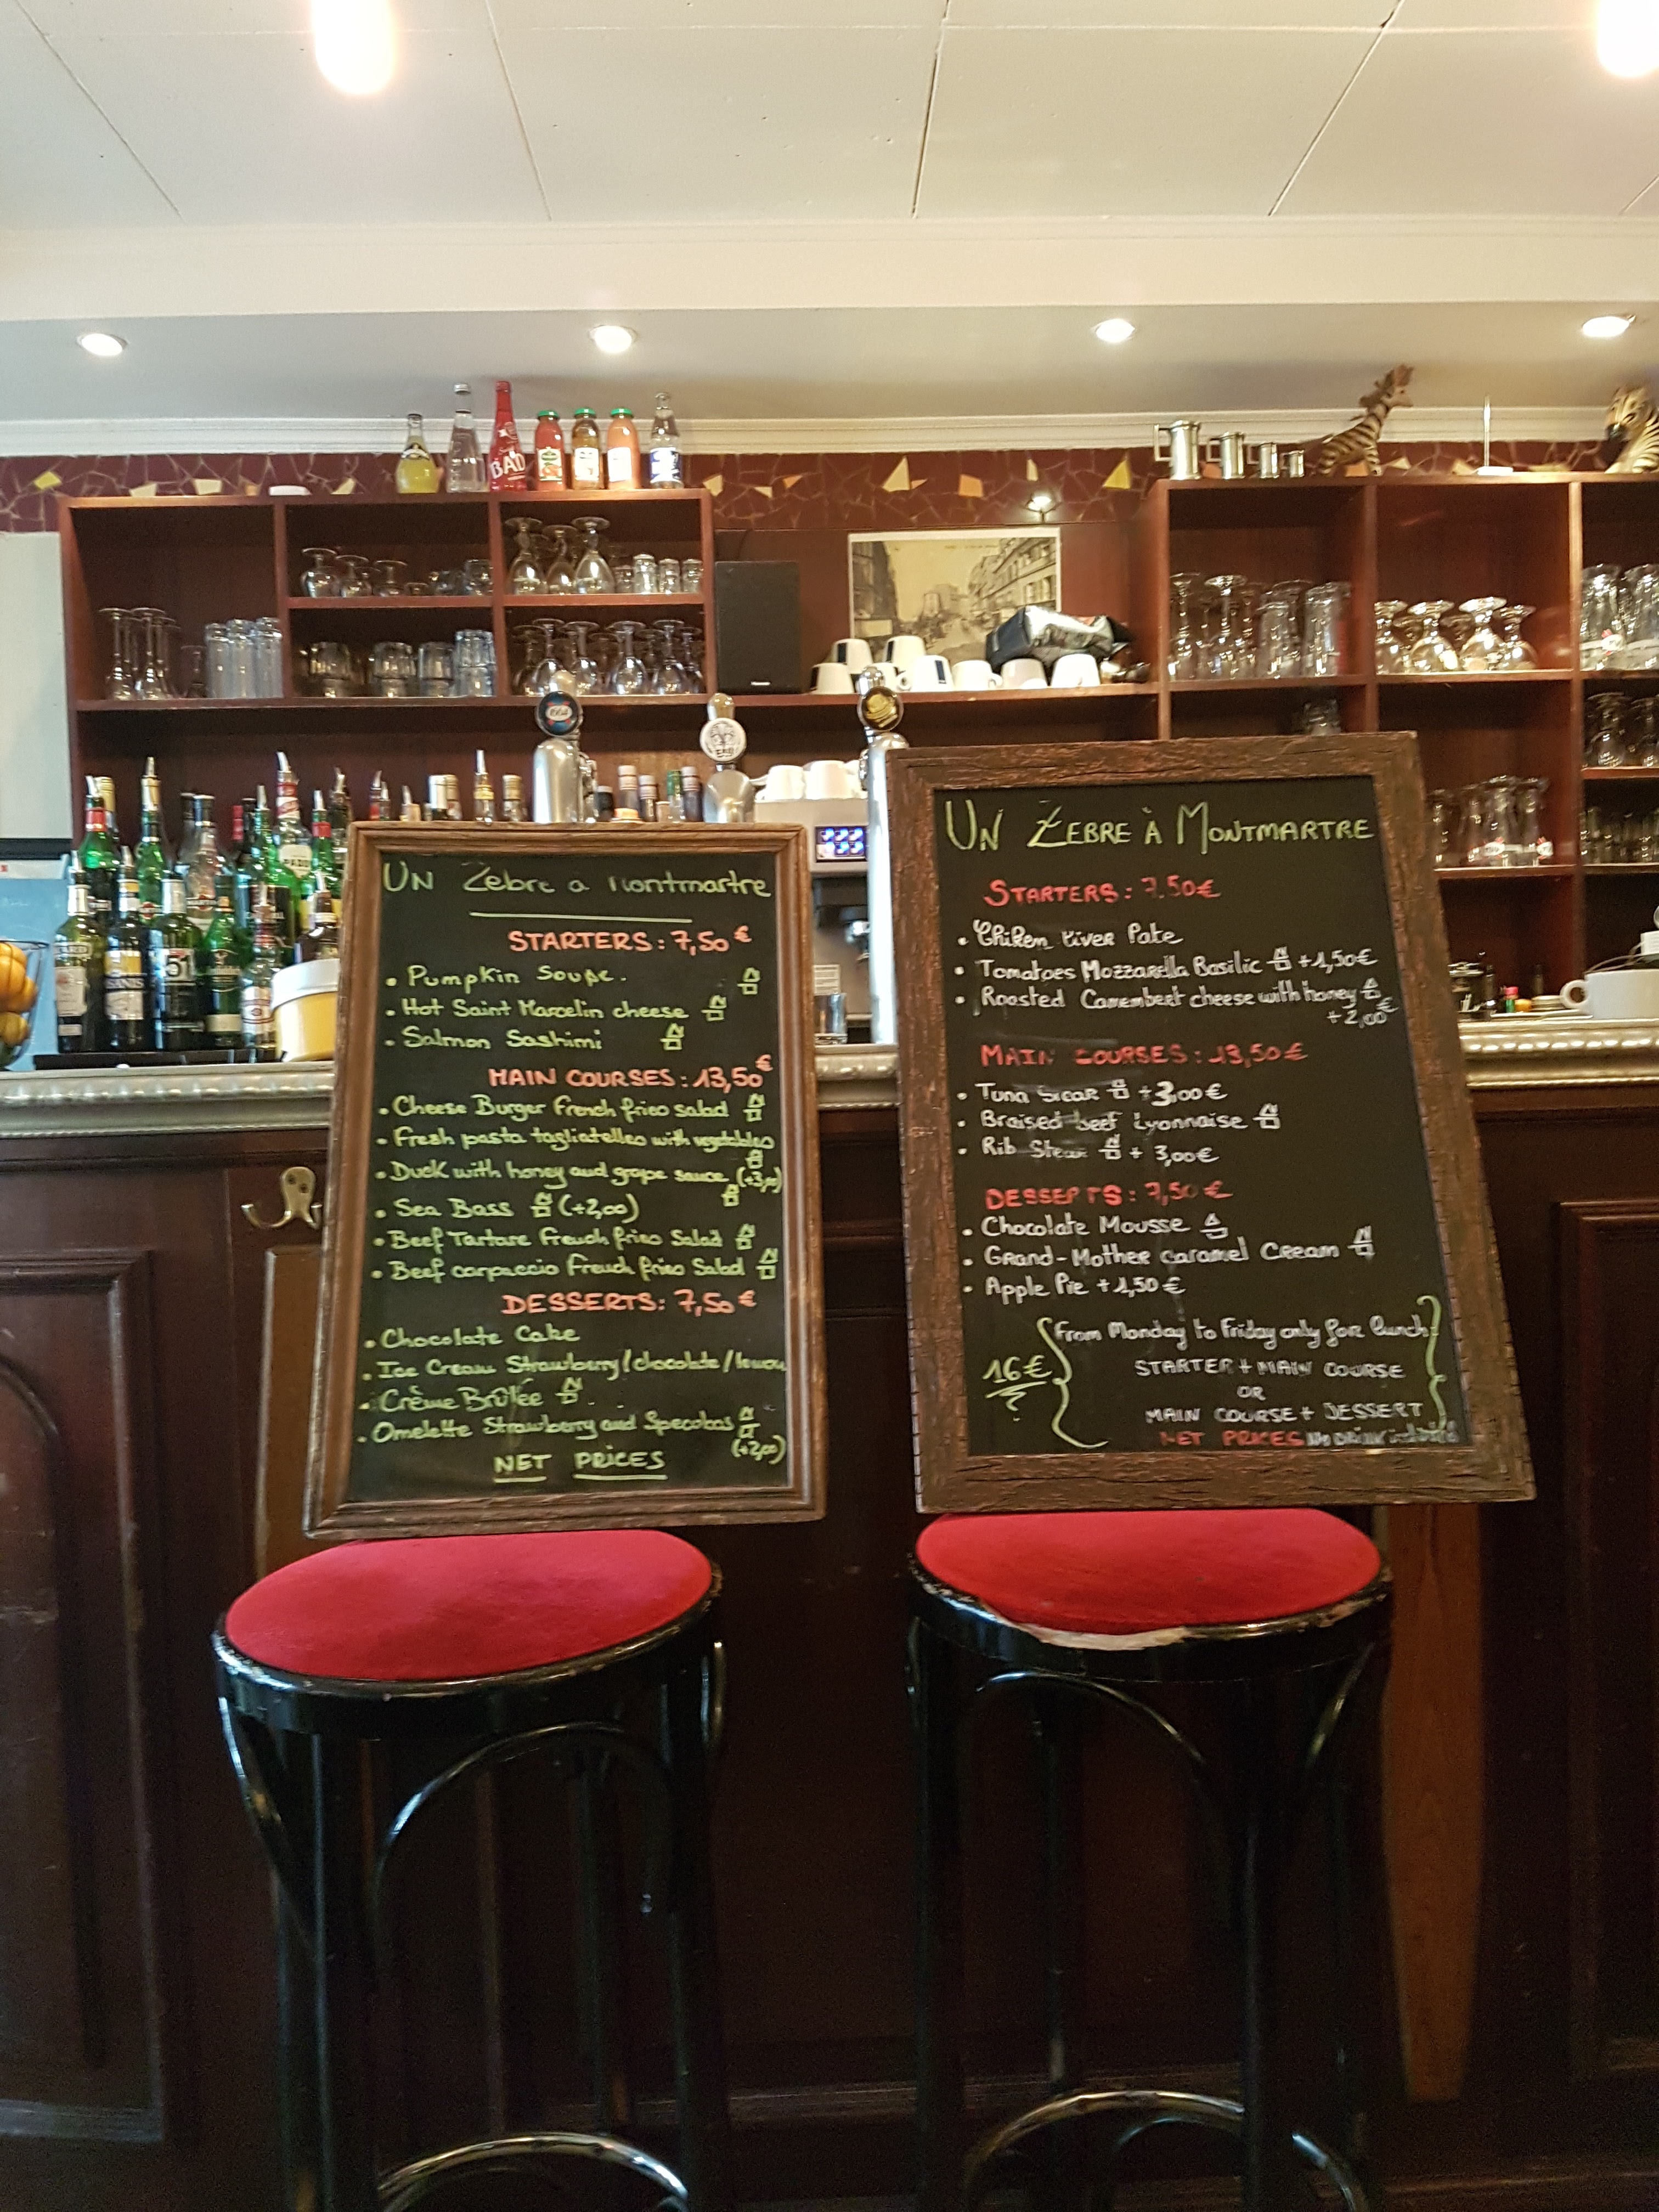 UN Zebre a Montmartre
STARTERS: 7,50€
• Pumpkin Soupe.
• Hot Saint Marcelin cheese
• Salmon Sashimi
MAIN COURSES: 13,50€
• Cheese Burger French fries salad
• Fresh pasta tagliatelles with vegetables
• Duck with honey and grape sauce (+3,00)
• Sea Bass (+2,00)
• Beef Tartare French fries Salad
• Beef carpaccio French fries Salad
DESSERTS: 7,50€
• Chocolate Cake
• Ice Cream Strawberry/chocolate/lemon
• Crème Brûlée
• Omelette Strawberry and Speculoos
(+2,00)
NET PRICES
UN ZEBRE À MONTMARTRE
STARTERS: 7.50€
• Chiken Liver Pate
• Tomatoes Mozzarella Basilic +1,50€
• Roasted Camembert cheese with honey
+2,00€
MAIN COURSES: 13,50€
• Tuna Steak +3,00€
• Braised beef Lyonnaise
• Rib Steak + 3,00€
DESSERTS: 7,50€
• Chocolate Mousse
• Grand-Mother caramel Cream
• Apple Pie +1,50€
from Monday to Friday only for lunch
16€
STARTER + MAIN COURSE
OR
MAIN COURSE + DESSERT
NET PRICES No DRINK included
BAD
51
1664